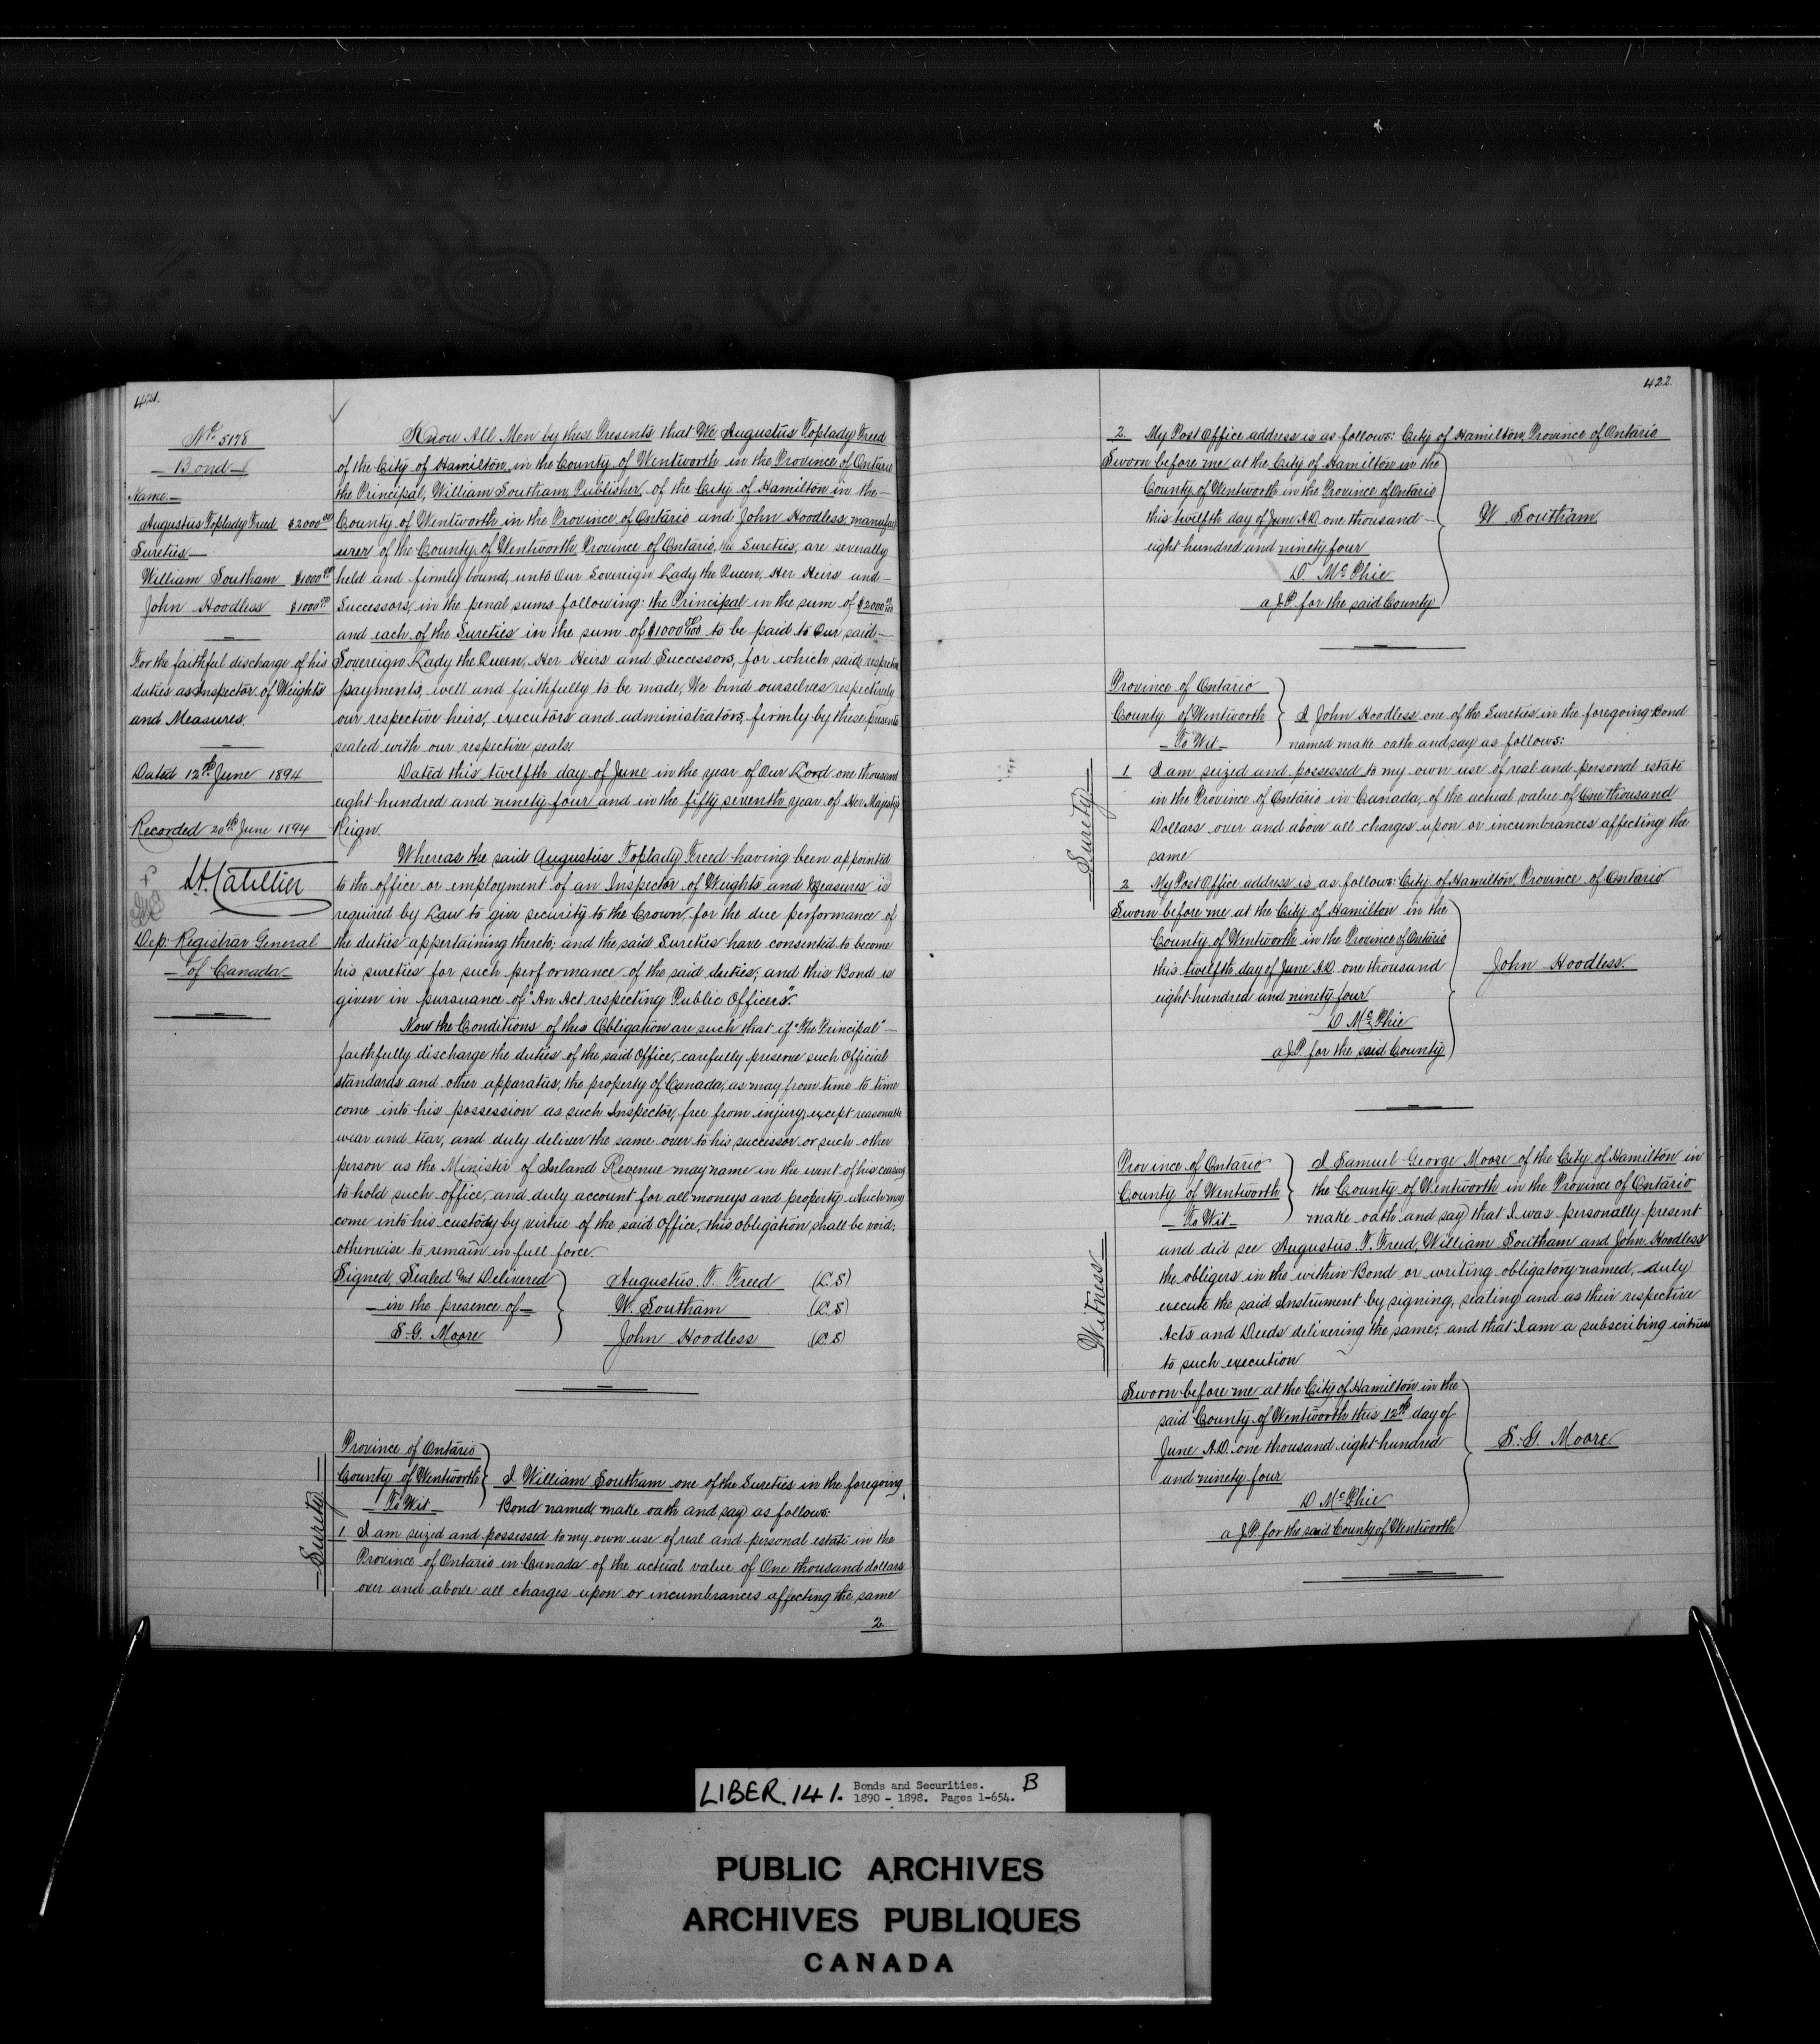 421.
Nº 5178
Bond
Name
Augustus Toplady Freed $2000 00
Sureties
William Southam $1000 00
John Hoodless $1000 00
For the faithful discharge of his
duties as Inspector of Weights
and Measures.
Dated 12th June 1894
Recorded 20th June 1894
Dep: Registrar General
of Canada
Know All Men by these Presents, that We Augustus Toplady Freed
of the City of Hamilton in the County of Wentworth in the Province of Ontario
the Principal, William Southam, Publisher, of the City of Hamilton in the
County of Wentworth in the Province of Ontario and John Hoodless, manufact
urer of the County of Wentworth Province of Ontario, the Sureties, are severally
held and firmly bound, unto Our Sovereign Lady the Queen, Her Heirs and
Successors, in the penal sums following: the Principal in the sum of $2000 00/100
and each of the Sureties in the sum of $1000 00/100 to be paid to Our said
Sovereign Lady the Queen, Her Heirs and Successors, for which said respective
payments, well and faithfully to be made, We bind ourselves respectively
our respective heirs, executors and administrators, firmly by these presents
sealed with our respective seals.
Dated this twelfth day of June in the year of Our Lord one thousand
eight hundred and ninety four and in the fifty seventh year of Her Majesty's
Reign.
Whereas the said Augustus Toplady Freed having been appointed
to the office or employment of an Inspector of Weights and Measures is
required by Law to give security to the Crown, for the due performance of
the duties appertaining thereto; and the said Sureties have consented to become
his sureties for such performance of the said duties; and this Bond is
given in pursuance of "An Act respecting Public Officers".
Now the Conditions of this Obligation are such that if "the Principal"
faithfully discharge the duties of the said Office, carefully preserve such Official
standards and other apparatus, the property of Canada, as may from time to time
come into his possession as such Inspector, free from injury, except reasonable
wear and tear, and duly deliver the same over to his successor or such other
person as the Minister of Inland Revenue may name in the event of his ceasing
to hold such office, and duly account for all moneys and property which may
come into his custody by virtue of the said Office, this obligation shall be void;
otherwise to remain in full force.
Signed, Sealed and Delivered
in the presence of
S. G. Moore
Augustus. T. Freed (L.S)
W. Southam (L.S)
John Hoodless (L.S)
Surety
Province of Ontario
County of Wentworth
To Wit
I William Southam one of the Sureties in the foregoing
Bond named, make oath and say as follows:
1 I am seized and possessed to my own use of real and personal estate in the
Province of Ontario in Canada of the actual value of One thousand dollars
over and above all charges upon or incumbrances affecting the same
2.
422.
2 My Post Office address is as follows: City of Hamilton, Province of Ontario
Sworn before me at the City of Hamilton in the
County of Wentworth in the Province of Ontario
this twelfth day of June A.D. one thousand
eight hundred and ninety four
D. McPhie
a J.P. for the said County
W. Southam
Surety
Province of Ontario
County of Wentworth
To Wit
I John Hoodless one of the Sureties in the foregoing Bond
named make oath and say as follows:
1 I am seized and possessed to my own use of real and personal estate
in the Province of Ontario in Canada, of the actual value of One thousand
Dollars over and above all charges upon or incumbrances affecting the
same
2 My Post Office address is as follows: City of Hamilton, Province of Ontario
Sworn before me at the City of Hamilton in the
County of Wentworth in the Province of Ontario
this twelfth day of June A.D. one thousand
eight hundred and ninety four
D McPhie
a J.P. for the said County
John Hoodless
Witness
Province of Ontario
County of Wentworth
To Wit
I Samuel George Moore of the City of Hamilton in
the County of Wentworth in the Province of Ontario
make oath and say that I was personally present
and did see Augustus. T. Freed, William Southam and John Hoodless
the obligers in the within Bond or writing obligatory named, duly
execute the said Instrument by signing, sealing and as their respective
Acts and Deeds delivering the same; and that I am a subscribing witness
to such execution
Sworn before me at the City of Hamilton in the
said County of Wentworth this 12th day of
June A.D. one thousand eight hundred
and ninety four
D McPhie
a J.P. for the said County of Wentworth
S. G. Moore
LIBER. 141. Bonds and Securities. B
1890 - 1898. Pages 1-654.
PUBLIC ARCHIVES
ARCHIVES PUBLIQUES
CANADA